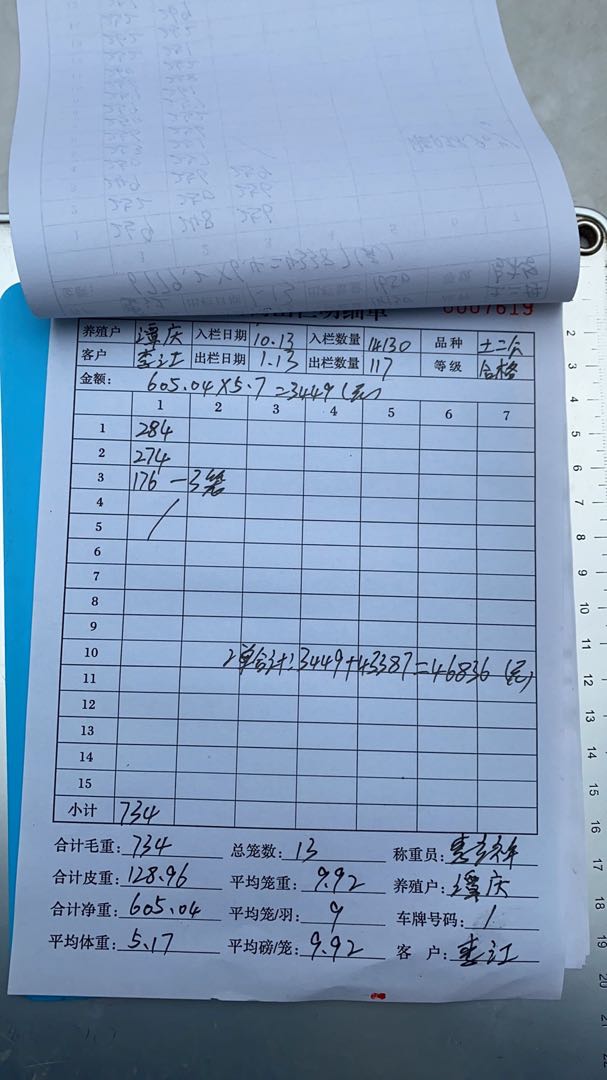 0007619
养殖户 谭庆 入栏日期 10.13 入栏数量 14130 品种 土二公
客户 李江 出栏日期 1.13 出栏数量 117 等级 合格
金额: 605.04×5.7=3449(元)
1 2 3 4 5 6 7
1 284
2 274
3 176 -3笼
4
5
6
7
8
9
10 2单合计:3449+43387=46836(元)
11
12
13
14
15
小计 734
合计毛重:734 总笼数:13 称重员:
合计皮重:128.96 平均笼重:9.92 养殖户:谭庆
合计净重:605.04 平均笼/羽:9 车牌号码:1
平均体重:5.17 平均磅/笼:9.92 客 户:李江